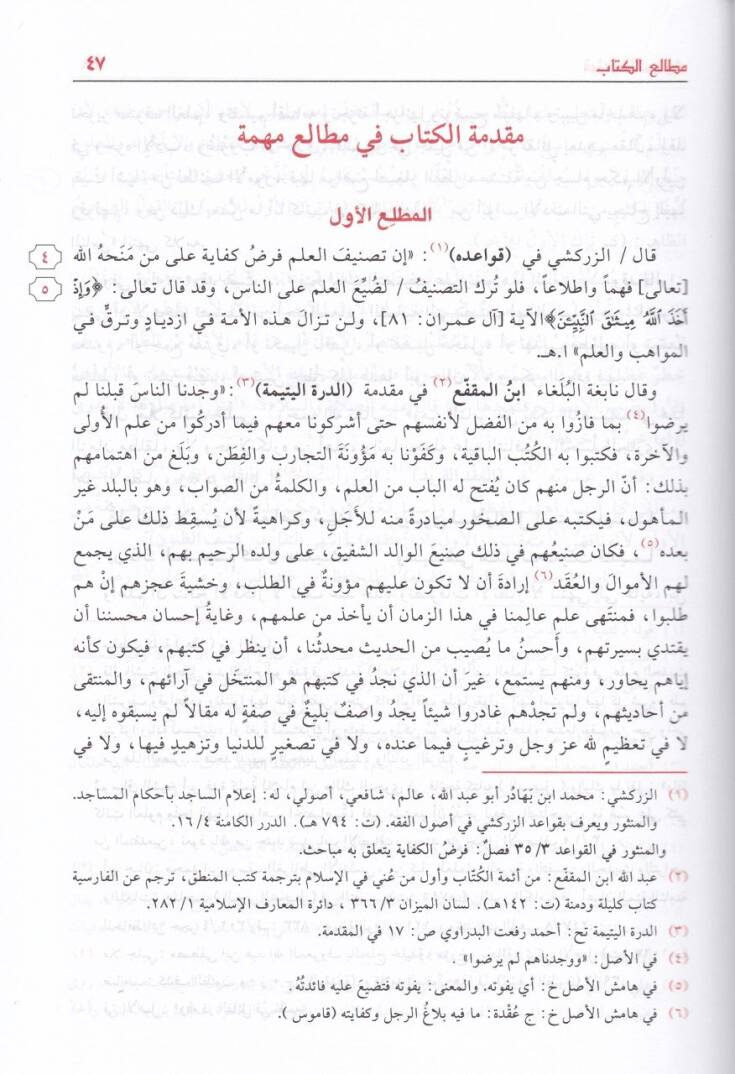 مطالع الكتاب
٤٧
مقدمة الكتاب في مطالع مهمة
المطلع الأول
قال / الزركشي في (قواعده)(١): «إن تصنيفَ العلم فرضُ كفاية على من مَنحَهُ الله
٤
[تعالى] فهماً واطلاعاً، فلو تُرك التصنيفُ / لضُيِّعَ العلم على الناس، وقد قال تعالى: ﴿وَإِذْ
٥
أَخَذَ ٱللَّهُ مِيثَٰقَ ٱلنَّبِيِّـۧنَ﴾ الآية [آل عمران: ٨١]، ولن تزالَ هذه الأمة في ازديادٍ وترقٍّ في
المواهب والعلم» ا.هـ.
وقال نابغة البُلغاء ابنُ المقفّع(٢) في مقدمة (الدرة اليتيمة)(٣): «وجدنا الناسَ قبلنا لم
يرضوا(٤) بما فازُوا به من الفضل لأنفسهم حتى أشركونا معهم فيما أدركوا من علم الأولى
والآخرة، فكتبوا به الكُتُب الباقية، وكَفَوْنا به مؤُونَةَ التجارب والفِطَن، وبَلَغ من اهتمامهم
بذلك: أنّ الرجل منهم كان يُفتح له الباب من العلم، والكلمةُ من الصواب، وهو بالبلد غير
المأهول، فيكتبه على الصخور مبادرةً منه للأجَلِ، وكراهيةً لأن يُسقِط ذلك على مَنْ
بعده(٥)، فكان صنيعُهم في ذلك صنيعَ الوالد الشفيق، على ولده الرحيم بهم، الذي يجمع
لهم الأموالَ والعُقَد(٦) إرادةَ أن لا تكون عليهم مؤونةٌ في الطلب، وخشيةَ عجزهم إنْ هم
طلبوا، فمنتَهى علم عالِمنا في هذا الزمان أن يأخذ من علمهم، وغايةُ إحسان محسننا أن
يقتدي بسيرتهم، وأَحسنُ ما يُصيب من الحديث محدثُنا، أن ينظر في كتبهم، فيكون كأنه
إياهم يحاور، ومنهم يستمع، غيرَ أن الذي نجدُ في كتبهم هو المنتخَل في آرائهم، والمنتقى
من أحاديثهم، ولم تجدْهم غادروا شيئاً يجدُ واصفٌ بليغٌ في صفةٍ له مقالاً لم يسبقوه إليه،
لا في تعظيمٍ لله عز وجل وترغيبٍ فيما عنده، ولا في تصغيرٍ للدنيا وتزهيدٍ فيها، ولا في
(١) الزركشي: محمد ابن بَهَادُر أبو عبد الله، عالم، شافعي، أصولي، له: إعلام الساجد بأحكام المساجد.
والمنثور ويعرف بقواعد الزركشي في أصول الفقه. (ت: ٧٩٤ هـ). الدرر الكامنة ١٦/٤.
والمنثور في القواعد ٣٥/٣ فصلٌ: فرضُ الكفاية يتعلق به مباحث.
(٢) عبد الله ابن المقفّع: من أئمة الكُتّاب وأول من عُني في الإسلام بترجمة كتب المنطق، ترجم عن الفارسية
كتاب كليلة ودمنة (ت: ١٤٢هـ). لسان الميزان ٣٦٦/٣ ، دائرة المعارف الإسلامية ٢٨٢/١.
(٣) الدرة اليتيمة تح: أحمد رفعت البدراوي ص: ١٧ في المقدمة.
(٤) في الأصل: «ووجدناهم لم يرضوا» .
(٥) في هامش الأصل خ: أي يفوته. والمعنى: يفوته فتضيع عليه فائدتُهُ.
(٦) في هامش الأصل خ: ج عُقْدة: ما فيه بلاغُ الرجل وكفايته (قاموس ).